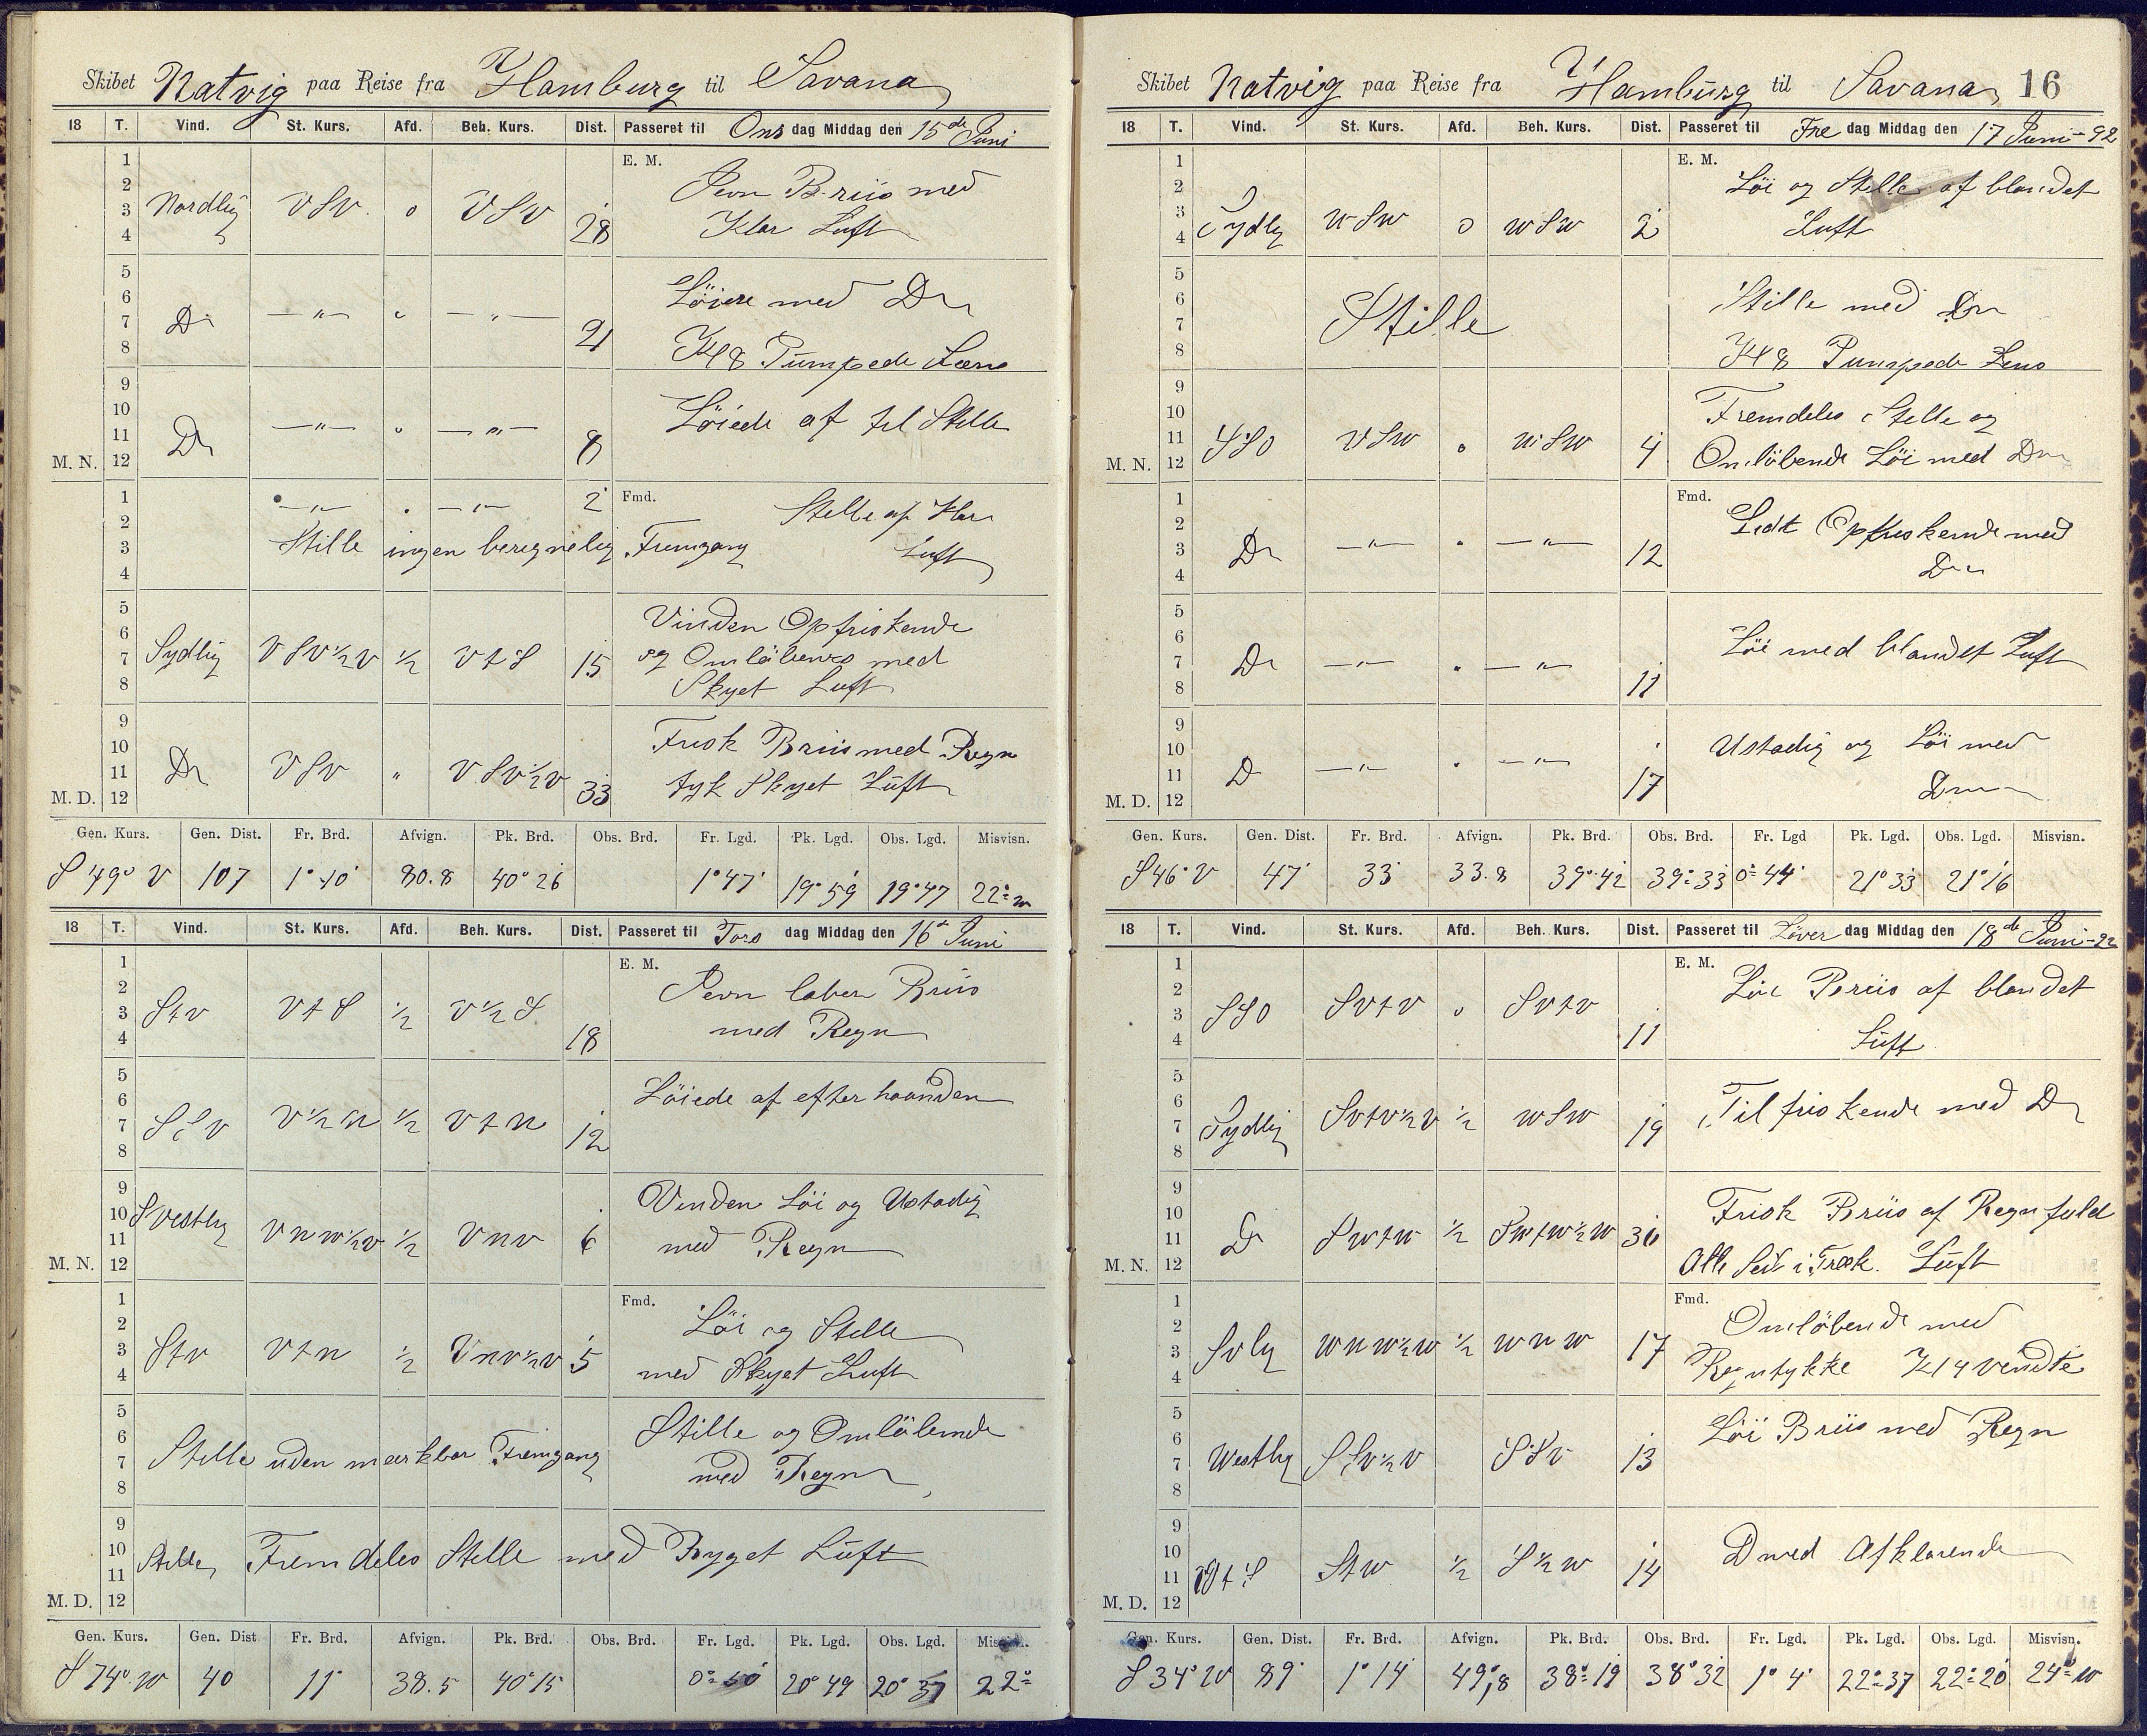 Skibet Natvig paa Reise fra Hamburg til Savana
18 T. Vind. St. Kurs. Afd. Beh. Kurs. Dist. Passeret til Ons dag Middag den 15de Juni
E. M.
1
2
3
4
Nordlig VSV. 0 VSV 28 Jevn Briis med
Klar Luft
5
6
7
8
Do — " — " — " — 21 Löiere med Do
Kl 8 Pumpede Læns
9
10
11
M. N. 12
Do — " — " — " — 8 Löiede af til Stille
1
2
3
4
— " — " — " — 2 Fmd. Stille af Klar
Stille ingen beregnelig Fremgang Luft
5
6
7
8
Sydlig VSV½V ½ VtS 15 Vinden Opfriskende
og Omløbens med
Skyet Luft
9
10
11
M. D. 12
Do VSV " VSV½V 33 Frisk Briis med Regn
tyk Skyet Luft
Gen. Kurs. Gen. Dist. Fr. Brd. Afvign. Pk. Brd. Obs. Brd. Fr. Lgd. Pk. Lgd. Obs. Lgd. Misvisn.
S 49° V 107 1° 10' 80.8 40° 26 1° 47' 19° 59 19° 47 22° w
18 T. Vind. St. Kurs. Afd. Beh. Kurs. Dist. Passeret til Tors dag Middag den 16de Juni
E. M.
1
2
3
4
Stv VtS ½ V½S 18 Jevn laber Briis
med Regn
5
6
7
8
SSv V½n ½ Vtn 12 Löiede af efter haanden
9
10
11
M. N. 12
SVestlig Vnw½v ½ Vnv 6 Vinden Löi og Ustadig
med Regn
1
2
3
4
Stv Vtn ½ Vnv½v 5 Fmd. Löi og Stille
med Skyet Luft
5
6
7
8
Stille uden mærkbar Fremgang Stille og Omlöbende
med Regn
9
10
11
M. D. 12
Stille Fremdeles Stille med Byget Luft
Gen. Kurs. Gen. Dist Fr. Brd. Afvign. Pk. Brd. Obs. Brd. Fr. Lgd. Pk. Lgd. Obs. Lgd. Misvisn.
S 74° w 40 11' 38.5 40° 15 0° 50 20° 49 20° 37 22°
Skibet Natvig paa Reise fra Hamburg til Savana 16
18 T. Vind. St. Kurs. Afd. Beh. Kurs. Dist. Passeret til Fre dag Middag den 17 Juni - 92
E. M.
1
2
3
4
Sydlig wSw 0 wSw 2 Löi og Stille af blandet
Luft
5
6
7
8
Stille Stille med Do
Kl 8 Pumpede Lens
9
10
11
M. N. 12
SSO VSw 0 wSw 4 Fremdeles Stille og
Omlöbende Löi med Do
1
2
3
4
Do — " — " — " — 12 Fmd. Lidt Opfriskende med
Do
5
6
7
8
Do — " — " — " — 11 Löi med blandet Luft
9
10
11
M. D. 12
D — " — " — " — 17 Ustadig og Löi med
Do
Gen. Kurs. Gen. Dist. Fr. Brd. Afvign. Pk. Brd. Obs. Brd. Fr. Lgd Pk. Lgd. Obs. Lgd. Misvisn.
S 46° V 47' 33' 33.8 39° 42 39° 33 0° 44' 21° 33 21° 16
18 T. Vind. St. Kurs. Afd. Beh. Kurs. Dist. Passeret til Löver dag Middag den 18de Juni - 92
E. M.
1
2
3
4
SSO Svtv 0 Svtv 11 Löi Briis af blandet
Luft
5
6
7
8
Sydlig Svtv½v ½ wSw 19 Tilfriskende med Do
9
10
11
M. N. 12
Do Swtw ½ Swtw½w 30 Frisk Briis af Regnfuld
Alle Seil i Træk. Luft
1
2
3
4
Svlig wnw½w ½ wnw 17 Fmd. Omlöbende med
Regntykke Kl 4 vendte
5
6
7
8
Westlig SSv½v SSv 13 Löi Briis med Regn
9
10
11
M. D. 12
VtS Stw ½ S½w 14 D med Afklarende
Gen. Kurs. Gen. Dist. Fr. Brd. Afvign. Pk. Brd. Obs. Brd. Fr. Lgd. Pk. Lgd. Obs. Lgd. Misvisn.
S 34° w 89' 1° 14' 49,8 38° 19 38° 32 1° 4' 22° 37 22° 20 24° w